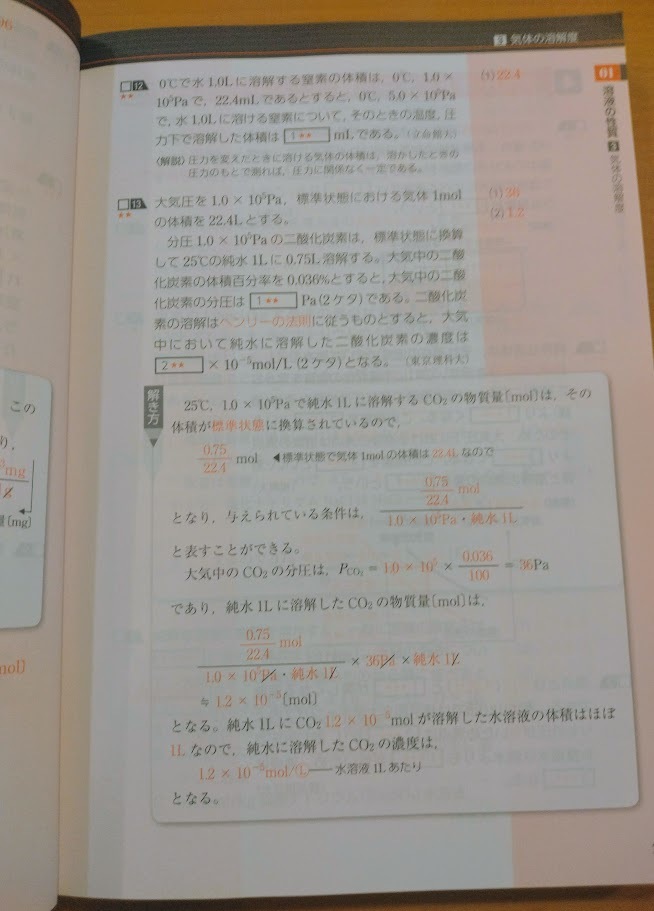 96
3 気体の溶解度
01
溶液の性質 3 気体の溶解度
□12 0℃で水1.0Lに溶解する窒素の体積は，0℃，1.0×
★★ 10⁵Paで，22.4mLであるとすると，0℃，5.0×10⁵Pa
で，水1.0Lに溶ける窒素について，そのときの温度，圧
力下で溶解した体積は 1★★ mLである。（立命館大）
(1) 22.4
〈解説〉圧力を変えたときに溶ける気体の体積は，溶かしたときの
圧力のもとで測れば，圧力に関係なく一定である。
□13 大気圧を1.0×10⁵Pa，標準状態における気体1mol
★★ の体積を22.4Lとする。
(1) 36
(2) 1.2
分圧1.0×10⁵Paの二酸化炭素は，標準状態に換算
して25℃の純水1Lに0.75L溶解する。大気中の二酸
化炭素の体積百分率を0.036%とすると，大気中の二酸
化炭素の分圧は 1★★ Pa(2ケタ)である。二酸化炭
素の溶解はヘンリーの法則に従うものとすると，大気
中において純水に溶解した二酸化炭素の濃度は
2★★ ×10⁻⁵mol/L(2ケタ)となる。（東京理科大）
解き方
25℃，1.0×10⁵Paで純水1Lに溶解するCO₂の物質量〔mol〕は，その
体積が標準状態に換算されているので，
0.75/22.4 mol ◀標準状態で気体1molの体積は22.4Lなので
となり，与えられている条件は， (0.75/22.4 mol)/(1.0×10⁵Pa・純水1L)
と表すことができる。
大気中のCO₂の分圧は，P_CO₂ = 1.0×10⁵ × 0.036/100 = 36Pa
であり，純水1Lに溶解したCO₂の物質量〔mol〕は，
(0.75/22.4 mol)/(1.0×10⁵Pa・純水1L) × 36Pa × 純水1L
≒ 1.2×10⁻⁵〔mol〕
となる。純水1LにCO₂ 1.2×10⁻⁵molが溶解した水溶液の体積はほぼ
1Lなので，純水に溶解したCO₂の濃度は，
1.2×10⁻⁵mol/Ⓛ―水溶液1Lあたり
となる。
この
り，
mg
〔mg〕
mol〕